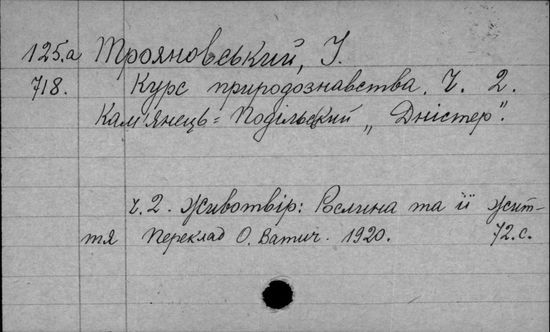 125.а Трояновський, І.
718. Курс природознавства. Ч. 2.
Кам'янець=Подільский „Дністер".
ч. 2. Животвір: Рослина та її жит-
тя Переклад О. Ватич. 1920. 72.с.